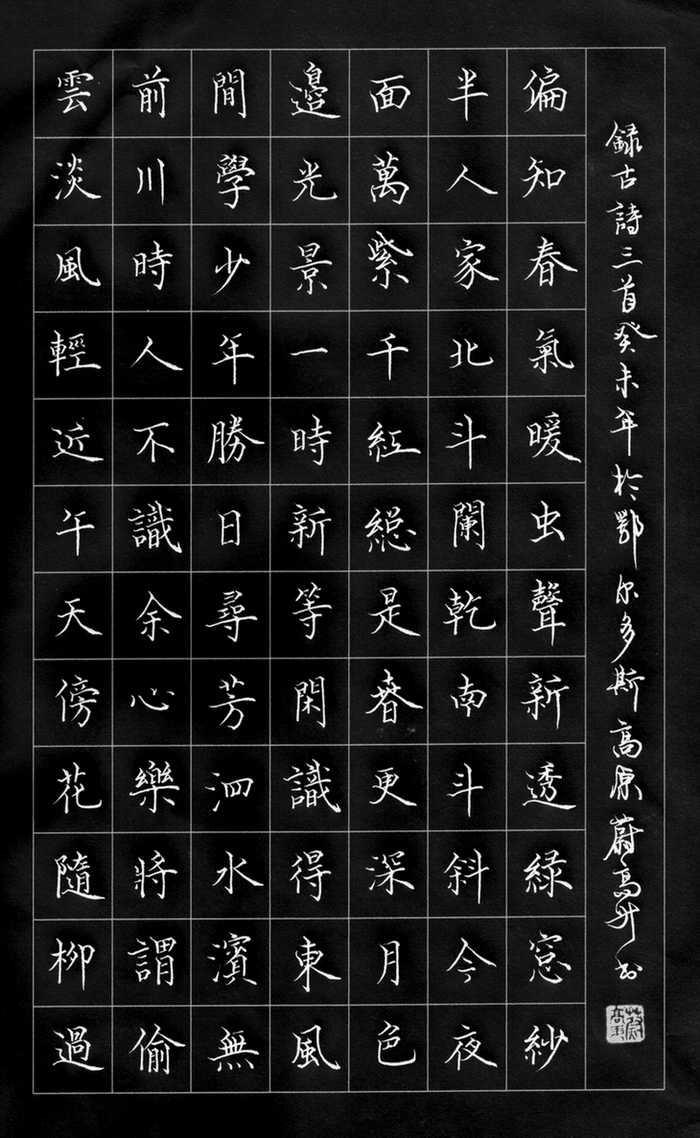 雲淡風輕近午天傍花隨柳過
前川時人不識余心樂將謂偷
間學少年勝日尋芳泗水濱無
邊光景一時新等閑識得東風
面萬紫千紅緫是春更深月色
半人家北斗闌乾南斗斜今夜
偏知春氣暖虫聲新透緑窓紗
録古詩三首癸未年於鄂尔多斯高原蔚高升书